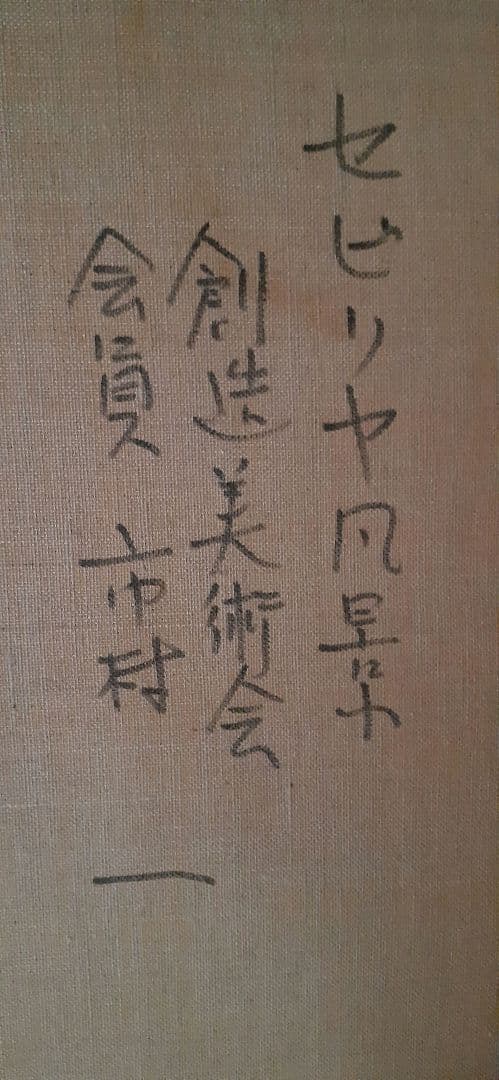 セビリヤ風景
創造美術会
会員 市村 一